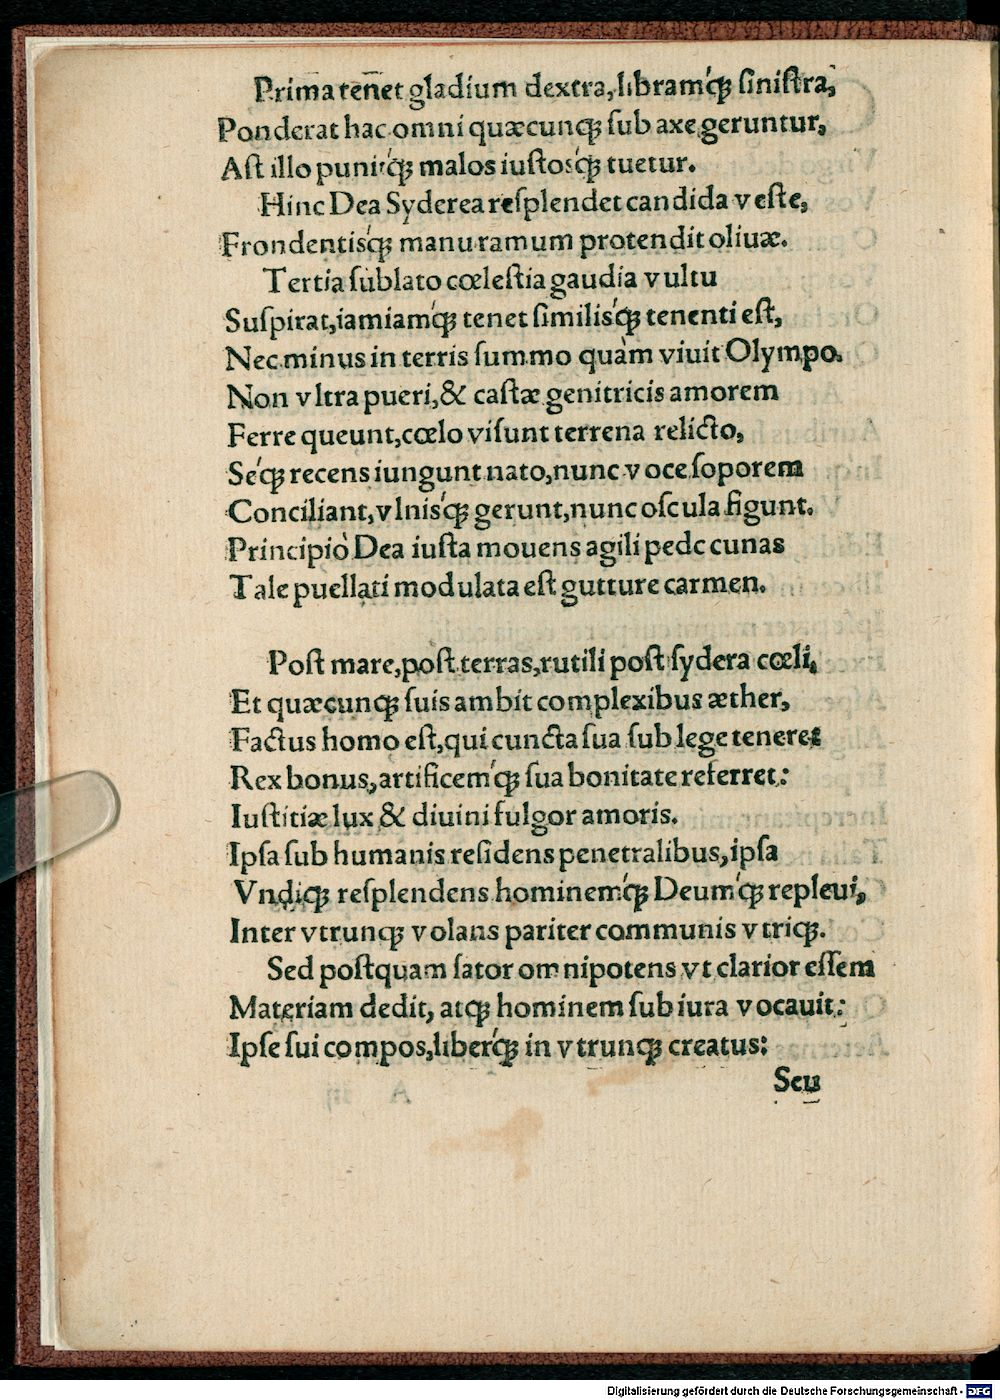 Prima tenet gladium dextra, libram'qꝫ ſiniſtra,
Ponderat hac omni quæcunqꝫ ſub axe geruntur,
Aſt illo punit'qꝫ malos iuſtos'qꝫ tuetur.
Hinc Dea Syderea reſplendet candida veſte,
Frondentis'qꝫ manu ramum protendit oliuæ.
Tertia ſublato cœleſtia gaudia vultu
Suſpirat, iamiam'qꝫ tenet ſimilis'qꝫ tenenti eſt,
Nec minus in terris ſummo quàm viuit Olympo.
Non vltra pueri, & caſtæ genitricis amorem
Ferre queunt, cœlo viſunt terrena relicto,
Se'qꝫ recens iungunt nato, nunc voce ſoporem
Conciliant, vlnis'qꝫ gerunt, nunc oſcula figunt.
Principiò Dea iuſta mouens agili pede cunas
Tale puellati modulata eſt gutture carmen.
Poſt mare, poſt terras, rutili poſt ſydera cœli,
Et quæcunqꝫ ſuis ambit complexibus æther,
Factus homo eſt, qui cuncta ſua ſub lege teneret
Rex bonus, artificem'qꝫ ſua bonitate referret:
Iuſtitiæ lux & diuini fulgor amoris.
Ipſa ſub humanis reſidens penetralibus, ipſa
Vndiqꝫ reſplendens hominem'qꝫ Deum'qꝫ repleui,
Inter vtrunqꝫ volans pariter communis vtriqꝫ.
Sed poſtquam ſator omnipotens vt clarior eſſem
Materiam dedit, atqꝫ hominem ſub iura vocauit:
Ipſe ſui compos, liber'qꝫ in vtrunqꝫ creatus:
Seu
Digitalisierung gefördert durch die Deutsche Forschungsgemeinschaft - DFG